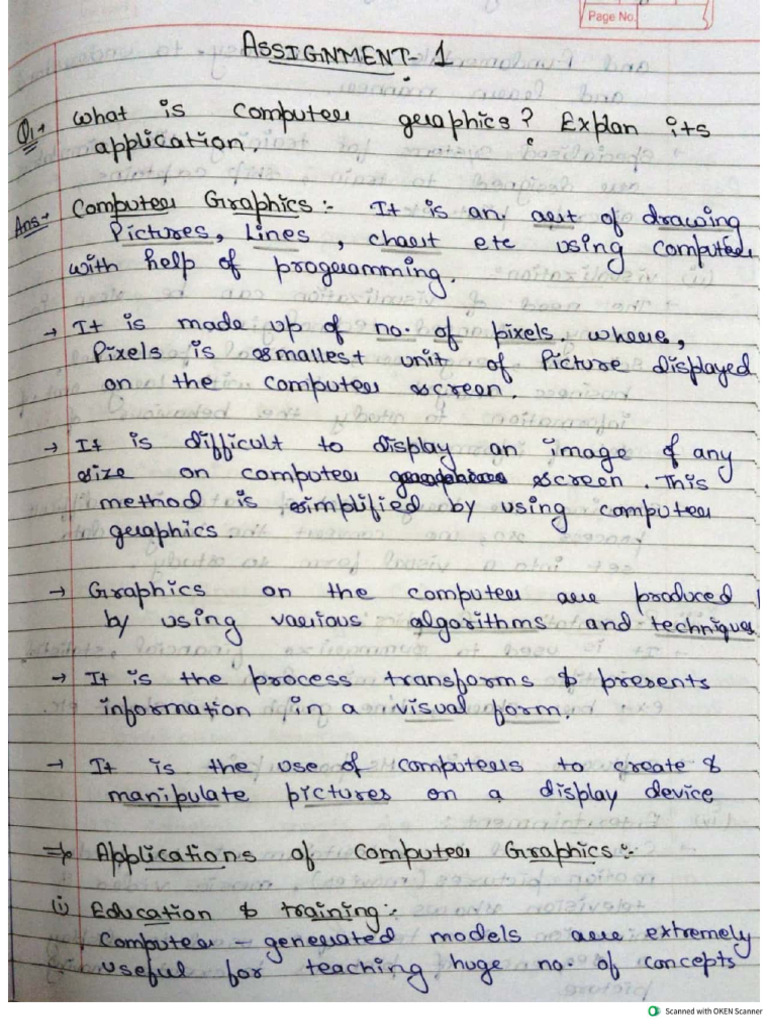 Page No.
ASSIGNMENT-1
Q1→ What is computer graphics? Explan its
application.
Ans→ Computer Graphics:- It is an art of drawing
Pictures, Lines, chart etc using computer
with help of programming.
→ It is made up of no. of pixels. where,
Pixels is smallest unit of Picture displayed
on the computer screen.
→ It is difficult to display an image of any
size on computer screen. This
method is simplified by using computer
graphics
→ Graphics on the computer are produced
by using various algorithms and techniques
→ It is the process transforms & presents
information in a visual form.
→ It is the use of computers to create &
manipulate pictures on a display device
⇒ Applications of Computer Graphics:-
(i) Education & training:-
Computer - generated models are extremely
useful for teaching huge no. of concepts
Scanned with OKEN Scanner